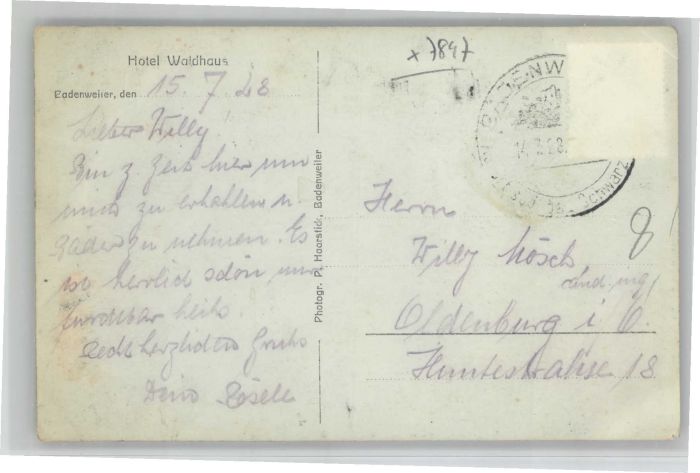 Hotel Waldhaus
Badenweiler, den 15. 7. 28
Lieber Willy!
Bin z. Zeit hier um
mich zu erhohlen u.
Bäder zu nehmen. Es
ist herrlich schön nur
furchtbar heiß.
Recht herzlichen Gruß
Dein
Photogr. P. Haarstick, Badenweiler
x 7897
BADENW
14.7.28.
Herrn
Willy Mösch
cand. ing.
8
Oldenburg i. O.
Huntestraße 18